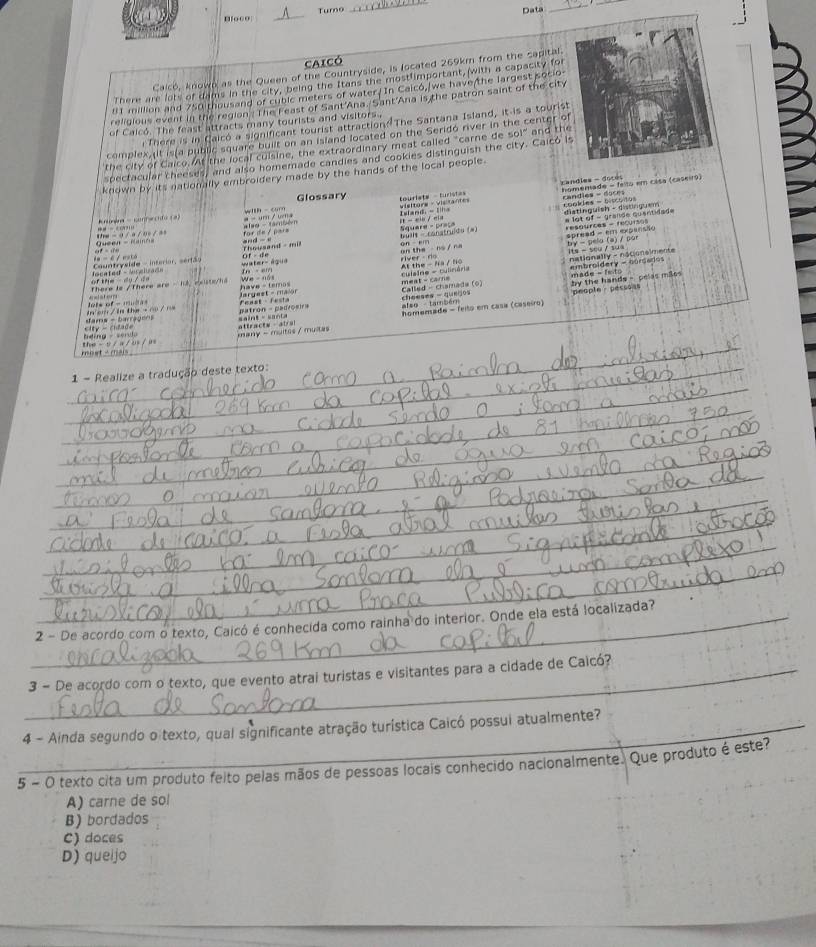 Bloco: A Turno Data
CAICÓ
Caicó, known as the Queen of the Countryside, is located 269km from the capital.
There are lots of dams in the city, being the Itans the most important, with a capacity for
81 million and 750 thousand of cubic meters of water. In Caicó, we have the largest socio-
religious event in the region. The Feast of Sant'Ana. Sant'Ana is the patron saint of the city
of Caicó. The feast attracts many tourists and visitors.
There is in Caicó a significant tourist attraction. The Santana Island, it is a tourist
complex, it is a public square built on an island located on the Seridó river in the center of
the city of Caicó. At the local cuisine, the extraordinary meat called "carne de sol" and the
spectacular cheeses, and also homemade candies and cookies distinguish the city. Caicó is
known by its nationally embroidery made by the hands of the local people.
Glossary
Known - conhecido (a)
as - como
the - o / a / os / as
Queen - Rainha
of - de
is - é / está
Countryside - interior, sertão
located - localizada
of the - do / da
There is / There are - há, existe/há
existem
lots of - muitas
in em / in the - no / na
dams - barragens
city - cidade
being - sendo
the - o / a / os / as
most - mais
with - com
a - um / uma
also - também
for de / para
and - e
Thousand - mil
Of - de
water - água
In - em
We - nós
have - temos
largest - maior
Feast - Festa
patron - padroeira
saint - santa
attracts - atrai
many - muitos / muitas
tourists - turistas
visitors - visitantes
Island - Ilha
it - ele / ela
Square - praça
built - construído (a)
on - em
on the - no / na
river - rio
At the - Na / No
cuisine - culinária
meat - carne
Called - chamada (o)
cheeses - queijos
also - também
homemade - feito em casa (caseiro)
candies - doces
homemade - feito em casa (caseiro)
candies - doces
cookies - biscoitos
distinguish - distinguem
a lot of - grande quantidade
resources - recursos
spread - em expansão
by - pelo (a) / por
its - seu / sua
nationally - nacionalmente
embroidery - bordados
made - feito
by the hands - pelas mãos
people - pessoas
1 - Realize a tradução deste texto:
caico conhecido como a Rainha do
da capital. existe muitas
269 km na cidade sendo o itans a mais
com a capacidade de 81 milhoes 750
mil de metros cubico de agua em caico, nos
temos o maior evento Religioso evento da Região
a Festa de santana. e a Padroeira Santa da
cidade de caico. a festa atrai muitas turistas e
visitantes ha em caico uma significante atração
turista a illha Santana ela é um complexo
turistico, ela é uma Praca Publica construida em
2 - De acordo com o texto, Caicó é conhecida como rainha do interior. Onde ela está localizada?
269 Km da capital
3 - De acordo com o texto, que evento atrai turistas e visitantes para a cidade de Caicó?
Festa de Santana
4 - Ainda segundo o texto, qual significante atração turística Caicó possui atualmente?
5 - O texto cita um produto feito pelas mãos de pessoas locais conhecido nacionalmente. Que produto é este?
A) carne de sol
B) bordados
C) doces
D) queijo